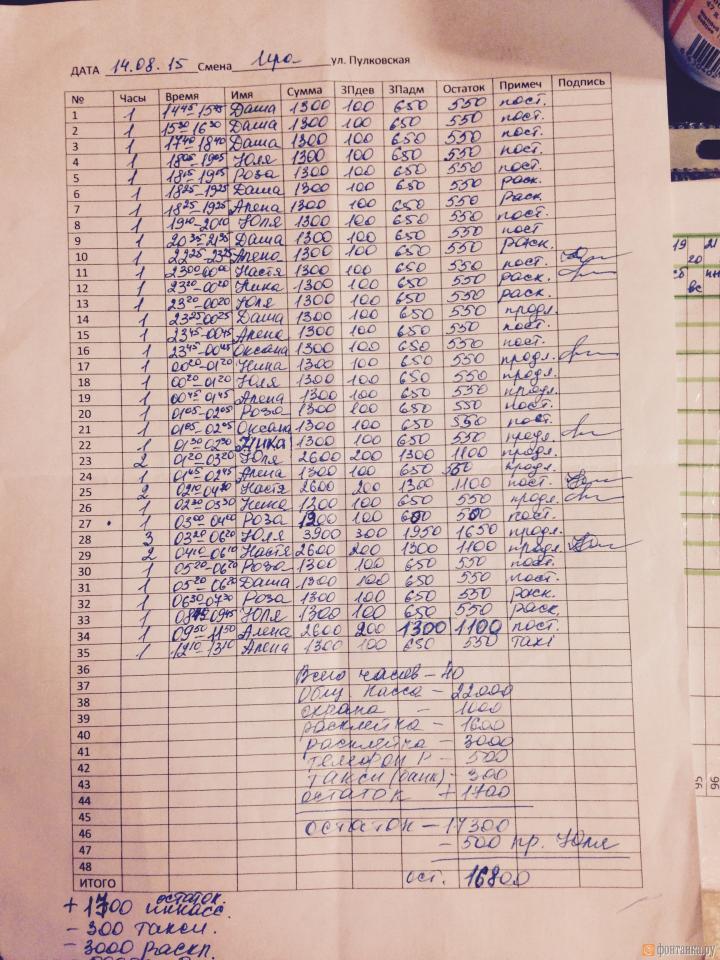 ДАТА 14.08.15 Смена Ира ул. Пулковская
№ Часы Время Имя Сумма ЗПдев ЗПадм Остаток Примеч Подпись
1 1 14 45-15 45 Даша 1300 100 650 550 пост.
2 1 15 30 16 30 Даша 1300 100 650 550 пост.
3 1 17 40-18 40 Даша 1300 100 650 550 пост.
4 1 18 05-19 05 Юля 1300 100 650 550 пост.
5 1 18 15-19 15 Роза 1300 100 650 550 пост.
6 1 18 25-19 25 Даша 1300 100 650 550 раск.
7 1 18 25-19 25 Арена 1300 100 650 550 раск.
8 1 19 10-20 10 Юля 1300 100 650 550 пост.
9 1 20 35-21 35 Даша 1300 100 650 550 пост
10 1 22 25-23 25 Алена 1300 100 650 550 раск.
11 1 23 00 00 00 Настя 1300 100 650 550 пост.
12 1 23 20-00 20 Ника 1300 100 650 550 раск.
13 1 23 20-00 20 Юля 1300 100 650 550 раск.
14 1 23 25 00 25 Даша 1300 100 650 550 продл.
15 1 23 45-00 45 Арена 1300 100 650 550 пост.
16 1 23 45-00 45 Оксана 1300 100 650 550 пост.
17 1 00 20-01 20 Ника 1300 100 650 550 продл.
18 1 00 20-01 20 Юля 1300 100 650 550 продл.
19 1 00 45 01 45 Арена 1300 100 650 550 продл.
20 1 01 05-02 05 Роза 1300 100 650 550 пост.
21 1 01 05-02 05 Оксана 1300 100 650 550 пост.
22 1 01 30 02 30 Ника 1300 100 650 550 продл
23 2 01 20-03 20 Юля 2600 200 1300 1100 продл.
24 1 01 45-02 45 Алена 1300 100 650 550 продл.
25 2 02 10 04 10 Настя 2600 200 1300 1100 пост.
26 1 02 30 03 30 Ника 1300 100 650 550 продл.
27 1 03 00 04 00 Роза 100 600 500 пост.
28 3 03 20 06 20 Юля 3900 300 1950 1650 продл.
29 2 04 10 06 10 Настя 2600 200 1300 1100 продл.
30 1 05 20-06 20 Роза 1300 100 650 550 пост.
31 1 05 20 06 20 Даша 1300 100 650 550 пост.
32 1 06 30 07 30 Роза 1300 100 650 550 раск.
33 1 09 45 Юля 1300 100 650 550 раск.
34 1 09 50-11 50 Алена 2600 200 1300 1100 пост.
35 1 12 10-13 10 Арена 1300 100 650 550 такі
36 Всего часов - 40
37 Общ касса - 22000
38 охрана - 1000
39 расклейка - 1600
40 расклейка - 3000
41 телефон Р - 500
42 такси (банк) - 300
43 остаток + 1700
44
45 остаток - 17300
46 - 500 пр. Юля
47
48 ост. 16800
ИТОГО
остаток.
+ 1700 инкасс.
- 300 такси.
- 3000 раскл.
19 21
20
сб пн
вс
95 96
фонтанка.ру